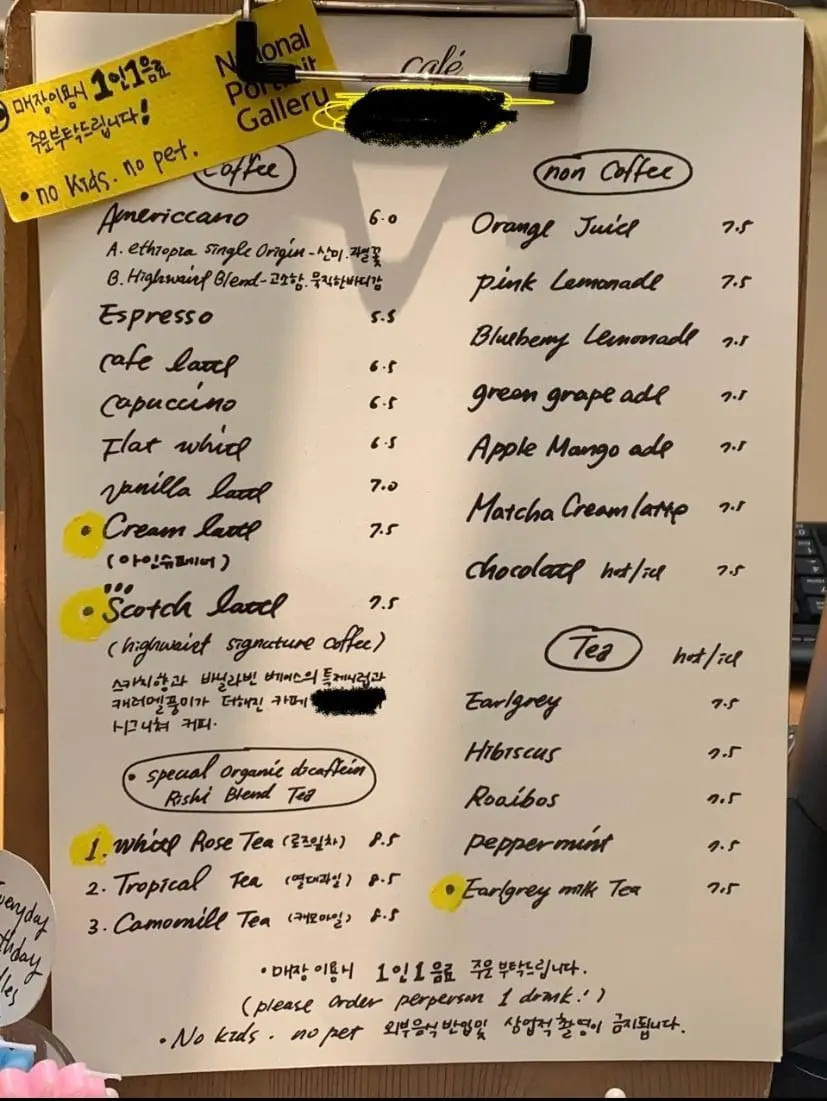 매장이용시 1인1음료
주문부탁드립니다!
• no kids. no pet.
National
Portrait
Gallery
café
Coffee
Americcano 6.0
A. ethiopia single Origin - 산미.과일꽃
B. Highwaist Blend - 고소함.묵직한바디감
Espresso 5.5
cafe latte 6.5
capuccino 6.5
Flat white 6.5
vanilla latte 7.0
• Cream latte 7.5
(아인슈페너)
• Scotch latte 7.5
(highwaist signature coffee)
스카치향과 바닐라빈 베이스의 특제시럽과
캐러멜풍미가 더해진 카페
시그니쳐 커피.
• special Organic dicaffein
Rishi Blend Tea
1. White Rose Tea (로즈잎차) 8.5
2. Tropical Tea (열대과일) 8.5
3. Camomill Tea (캐모마일) 8.5
non Coffee
Orange Juice 7.5
pink Lemonade 7.5
Blueberry Lemonade 7.5
green grape ade 7.5
Apple Mango ade 7.5
Matcha Cream latte 7.5
chocolate hot/ice 7.5
Tea hot/ice
Earlgrey 7.5
Hibiscus 7.5
Roaibos 7.5
peppermint 7.5
• Earlgrey milk Tea 7.5
• 매장이용시 1인1음료 주문부탁드립니다.
(please order perperson 1 drink!)
• No kids. no pet 외부음식반입및 상업적촬영이 금지됩니다.
everyday